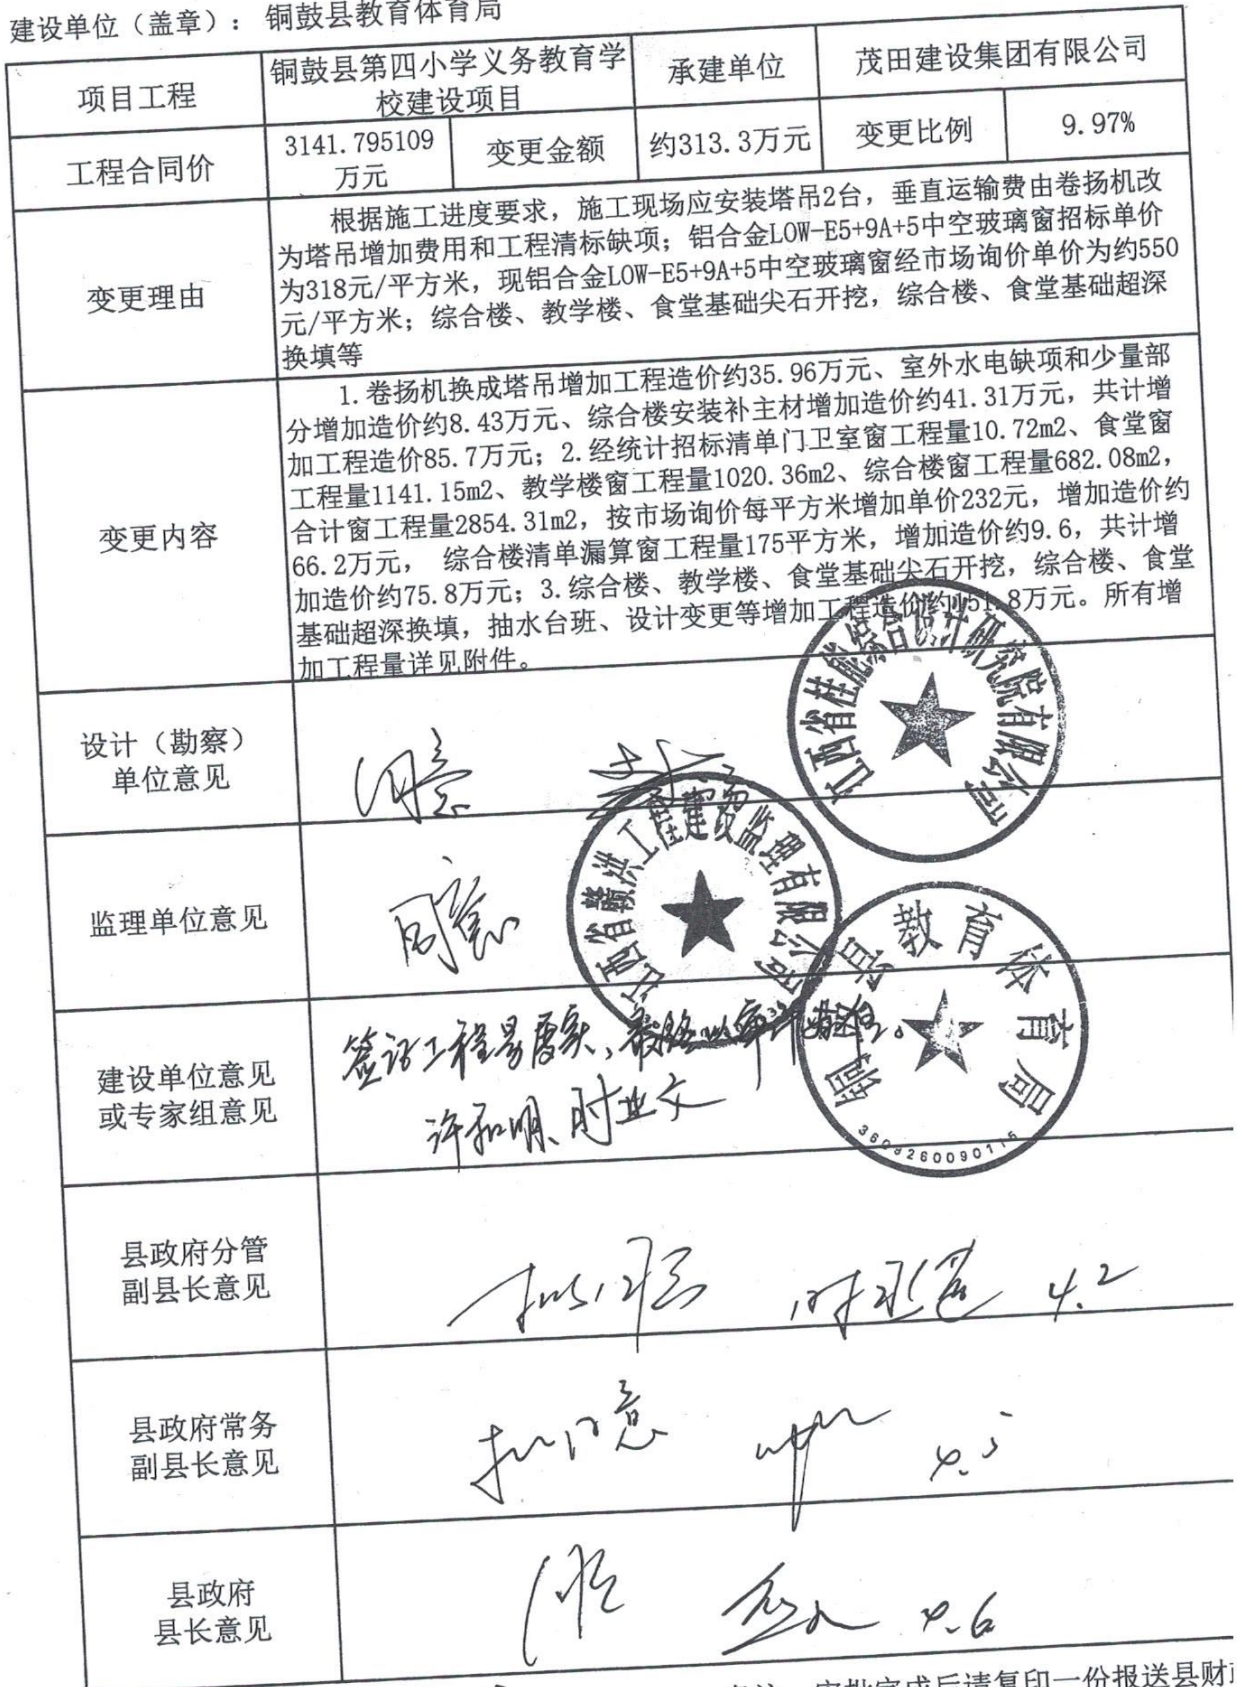 建设单位（盖章）： 铜鼓县教育体育局
项目工程
铜鼓县第四小学义务教育学
校建设项目
承建单位
茂田建设集团有限公司
工程合同价
3141.795109
万元
变更金额
约313.3万元
变更比例
9.97%
变更理由
根据施工进度要求，施工现场应安装塔吊2台，垂直运输费由卷扬机改
为塔吊增加费用和工程清标缺项；铝合金LOW-E5+9A+5中空玻璃窗招标单价
为318元/平方米，现铝合金LOW-E5+9A+5中空玻璃窗经市场询价单价为约550
元/平方米；综合楼、教学楼、食堂基础尖石开挖，综合楼、食堂基础超深
换填等
变更内容
1.卷扬机换成塔吊增加工程造价约35.96万元、室外水电缺项和少量部
分增加造价约8.43万元、综合楼安装补主材增加造价约41.31万元，共计增
加工程造价85.7万元；2.经统计招标清单门卫室窗工程量10.72m2、食堂窗
工程量1141.15m2、教学楼窗工程量1020.36m2、综合楼窗工程量682.08m2，
合计窗工程量2854.31m2，按市场询价每平方米增加单价232元，增加造价约
66.2万元， 综合楼清单漏算窗工程量175平方米，增加造价约9.6，共计增
加造价约75.8万元；3.综合楼、教学楼、食堂基础尖石开挖，综合楼、食堂
基础超深换填，抽水台班、设计变更等增加工程造价约151.8万元。所有增
加工程量详见附件。
江西省桂能综合设计研究院有限公司
设计（勘察）
单位意见
同意
监理单位意见
同意
江西省赣洪工程建设监理有限公司
铜鼓县教育体育局
3609260090115
建设单位意见
或专家组意见
签证工程量属实，最终以审计为准。
县政府分管
副县长意见
拟同意
4.2
县政府常务
副县长意见
拟同意
4.5
县政府
县长意见
同意
4.6
审批完成后请复印一份报送县财